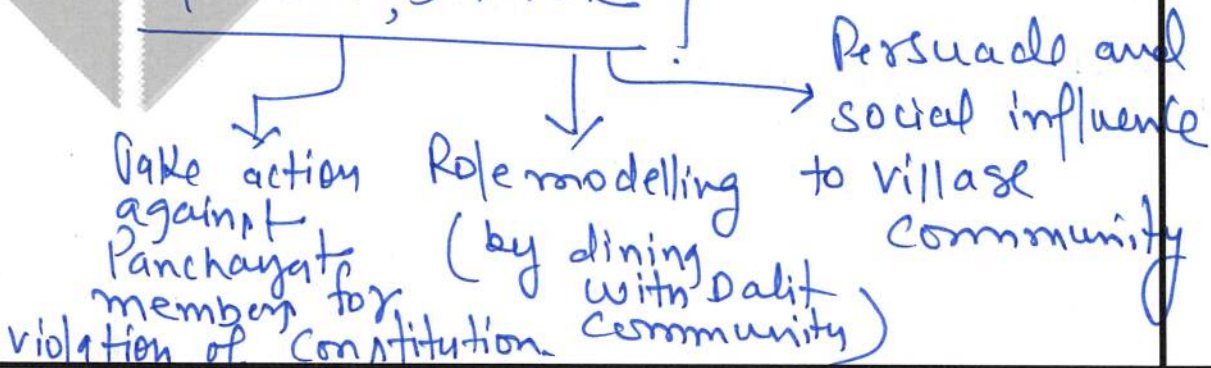 Take action
against
Panchayat
members for
violation of Constitution.
Role modelling
(by dining
with Dalit
community)
Persuade and
social influence
to village
community